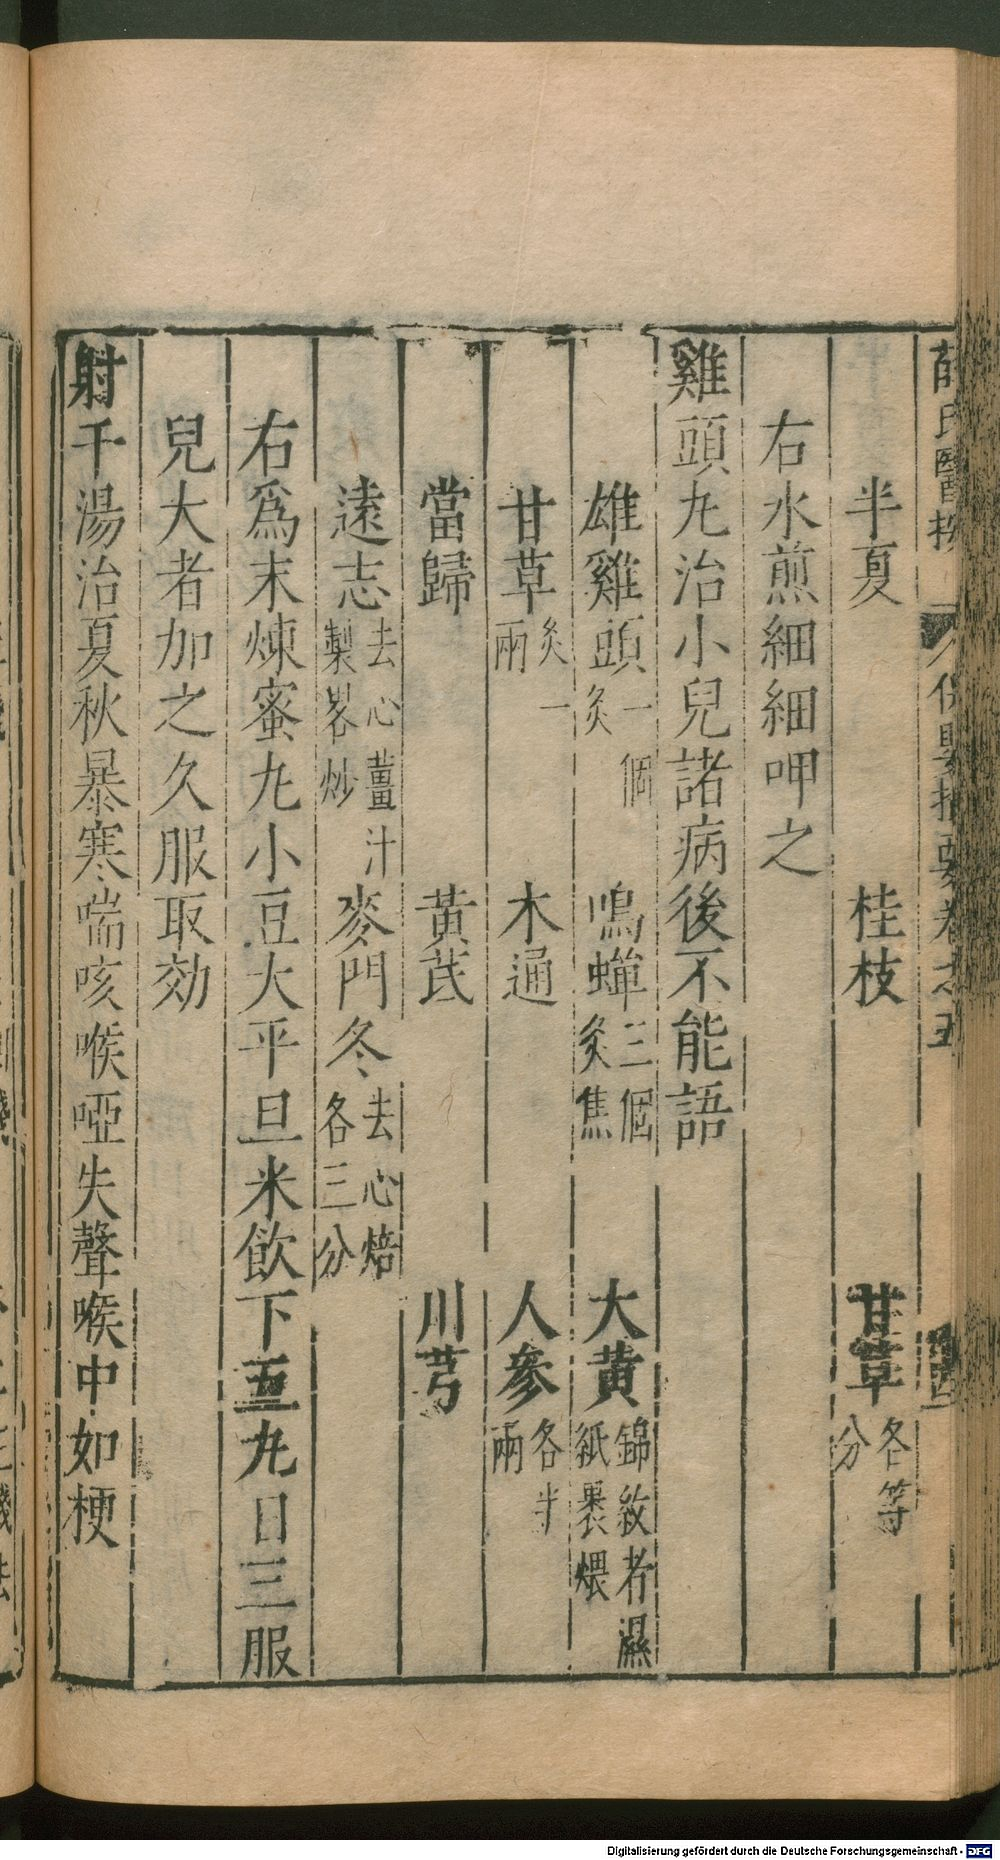 薛氏醫按 保嬰撮要卷之五
半夏 桂枝 甘草各等分
右水煎細細呷之
雞頭丸治小兒諸病後不能語
雄雞頭一個炙 鳴蟬三個炙焦 大黃錦紋者濕紙裹煨
甘草炙一兩 木通 人參各半兩
當歸 黃芪 川芎
遠志去心薑汁製畧炒 麥門冬去心焙各三分
右爲末煉蜜丸小豆大平旦米飲下五丸日三服
兒大者加之久服取効
射干湯治夏秋暴寒喘咳喉啞失聲喉中如梗
Digitalisierung gefördert durch die Deutsche Forschungsgemeinschaft - DFG